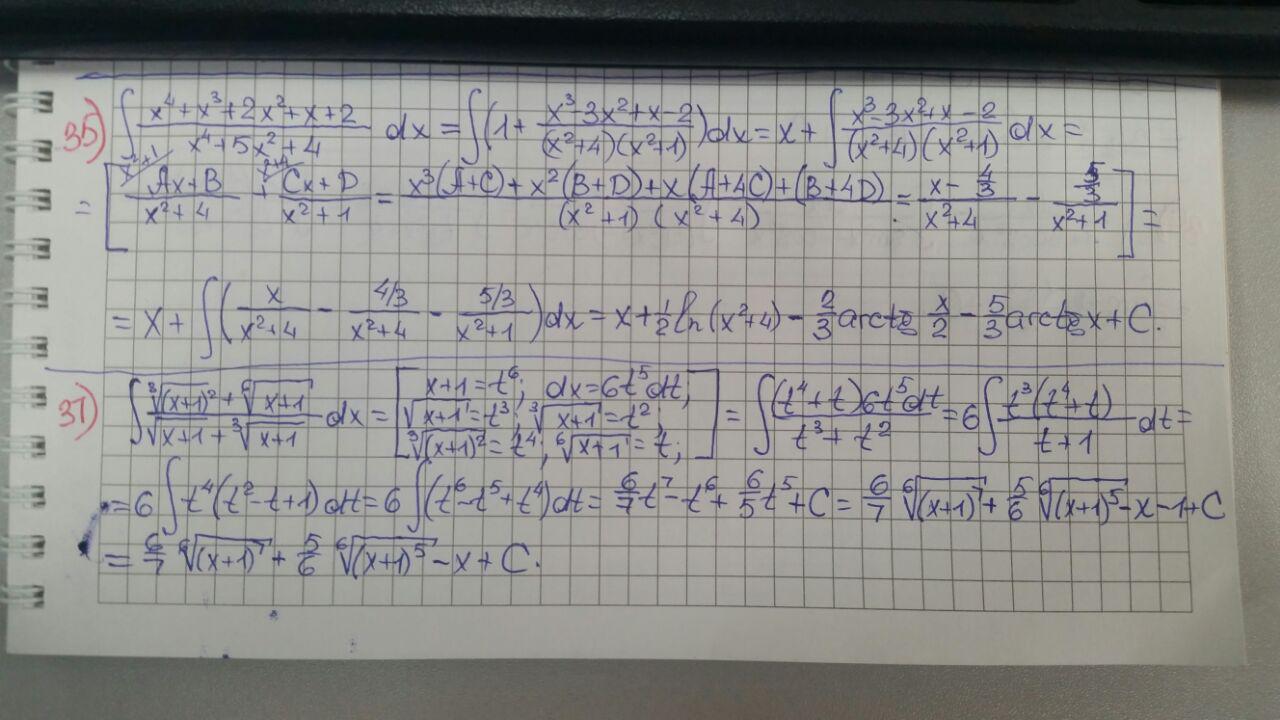 35) ∫ (x⁴+x³+2x²+x+2)/(x⁴+5x²+4) dx = ∫(1+ (x³-3x²+x-2)/((x²+4)(x²+1)))dx = x+ ∫ (x³-3x²+x-2)/((x²+4)(x²+1)) dx =
= [ (Ax+B)/(x²+4) + (Cx+D)/(x²+1) = (x³(A+C)+x²(B+D)+x(A+4C)+(B+4D))/((x²+1)(x²+4)) = (x-4/3)/(x²+4) - (5/3)/(x²+1) ] =
= x+ ∫( x/(x²+4) - (4/3)/(x²+4) - (5/3)/(x²+1) )dx = x+½ln(x²+4) - 2/3 arctg x/2 - 5/3 arctg x+C.
37) ∫ (∛(x+1)² + ⁶√(x+1))/(√(x+1) + ∛(x+1)) dx = [ x+1=t⁶; dx=6t⁵dt; √(x+1)=t³; ∛(x+1)=t²; ∛(x+1)²=t⁴; ⁶√(x+1)=t; ] = ∫ ((t⁴+t)6t⁵dt)/(t³+t²) = 6∫ (t³(t⁴+t))/(t+1) dt =
= 6∫t⁴(t²-t+1)dt = 6∫(t⁶-t⁵+t⁴)dt = 6/7 t⁷-t⁶+ 6/5 t⁵+C = 6/7 ⁶√(x+1)⁷ + 5/6 ⁶√(x+1)⁵ -x-1+C
= 6/7 ⁶√(x+1)⁷ + 5/6 ⁶√(x+1)⁵ -x+C.